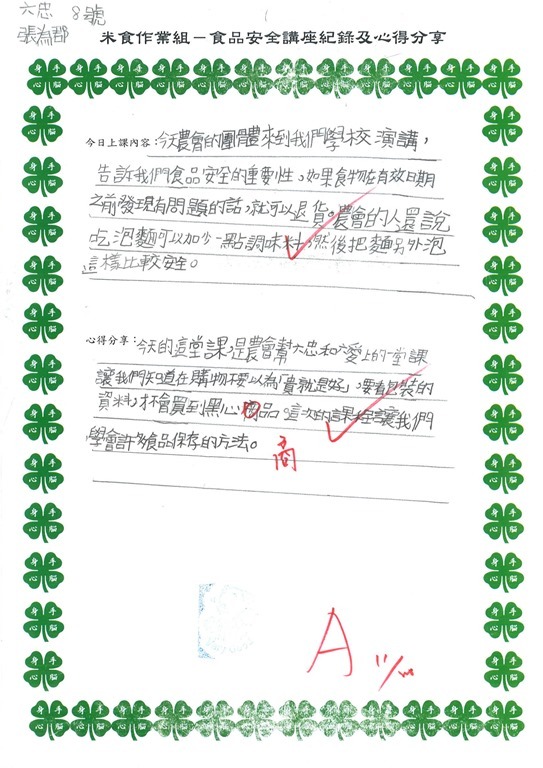 六忠 8號
張為郡
米食作業組－食品安全講座紀錄及心得分享
今日上課內容：今天農會的團體來到我們學校演講，
告訴我們食品安全的重要性。如果食物在有效日期
之前發現有問題的話，就可以退貨。農會的人還說
吃泡麵可以加少一點調味料，然後把麵另外泡
這樣比較安全。
心得分享：今天的這堂課，是農會幫大忠和六愛上的一堂課
讓我們知道在購物不要以為「貴就是好」，要看包裝的
資料，才不會買到黑心商品。這次的課程讓我們
學會許多食品保存的方法。
商
A 11/
身 手 心 腦